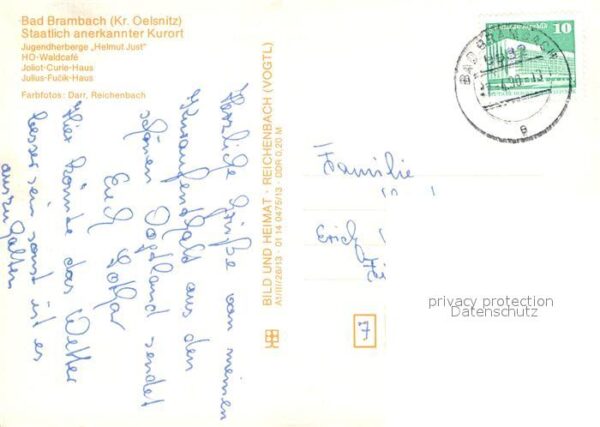 Bad Brambach (Kr. Oelsnitz)
Staatlich anerkannter Kurort
Jugendherberge „Helmut Just“
HO-Waldcafé
Joliot-Curie-Haus
Julius-Fučik-Haus
Farbfotos: Darr, Reichenbach
Herzliche Grüße von meinen
Kuraufenthalt aus den
schönen Vogtland sendet
Euch Lothar
Hier könnte das Wetter
besser sein sonst ist es
auszuhalten
BILD UND HEIMAT · REICHENBACH (VOGTL)
A1/III/26/13 01 14 0475/13 · DDR 0,20 M
10
BAD BRAMBACH
9932
Familie
Erich
7
privacy protection
Datenschutz